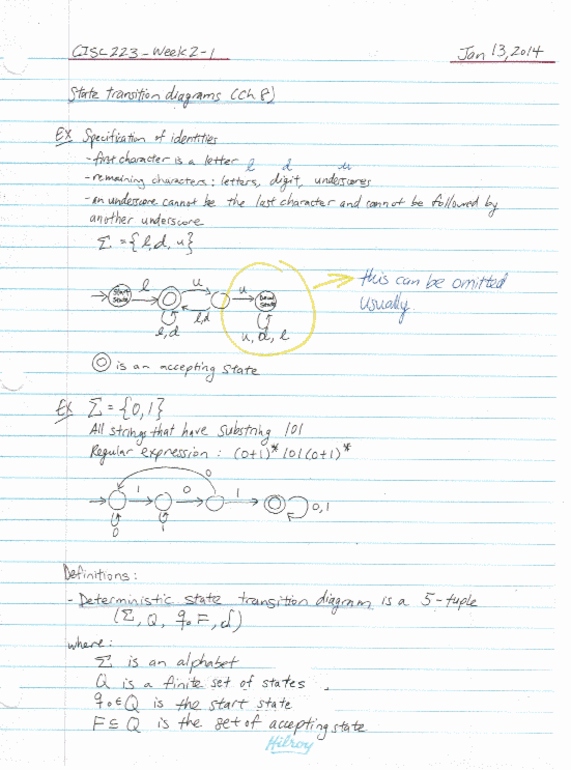 CISC 223 - Week 2-1 Jan 13, 2014
State transition diagrams (Ch 8)
Ex Specification of identities
- first character is a letter l d u
- remaining characters: letters, digit, underscores
- an underscore cannot be the last character and cannot be followed by
another underscore
Σ = {l, d, u}
Start State l u u Dead State
l,d l,d u, d, l
this can be omitted
usually
is an accepting state
Ex Σ = {0,1}
All strings that have substring 101
Regular expression : (0+1)* 101 (0+1)*
0
1 0 1 0,1
0 1
Definitions:
- Deterministic state transition diagram is a 5-tuple
(Σ, Q, q₀ F, d)
where:
Σ is an alphabet
Q is a finite set of states
q₀ ∈ Q is the start state
F ⊆ Q is the set of accepting state
Hilroy